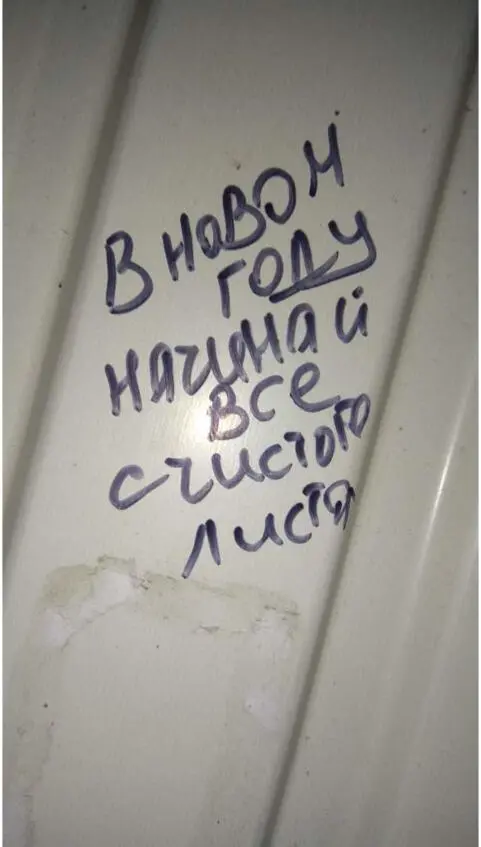 В НОВОМ
ГОДУ
НАЧИНАЙ
ВСЕ
С ЧИСТОГО
ЛИСТА